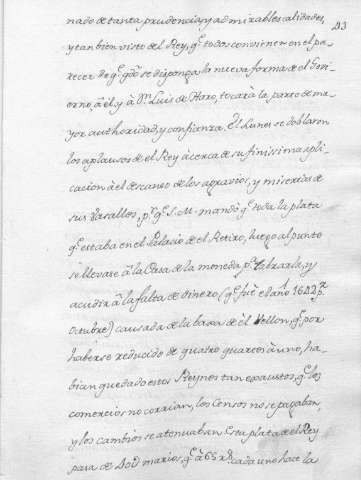 43
nado de tanta prudencia, y admirables calidades,
y tan bien visto del Rey, q.e todos convienen en el pa-
recer de q.e q.do se disponga la nueva forma de el Govi-
erno, à el, y à D.n Luis de Haro, tocarà la parte de ma-
yor authoridad, y confianza. El Lunes se doblaron
los aplausos de el Rey àcerca de su finissima apli-
cacion àel descanso de los agravios, y miserias de
sus Vasallos, p.r q.e S. M. mandò q.e toda la plata
q.e estaba en el Palacio de el Retiro, luego al punto
se llevase à la Casa de la moneda p.a labrarla, y
acudir à la falta de dinero (q.e fuè el año 1642 p.r
Octubre) causada de la baxa de el Vellon, q.e por
haberse reducido de quatro quartos à uno, ha-
bian quedado estos Reynos tan exhaustos, q.e los
comercios no corrian, los Censos no se pagaban,
y los cambios se atenuaban. Esta plata de el Rey
pasa de Doz.e marios, q.e à 65 r.s cada uno hace la